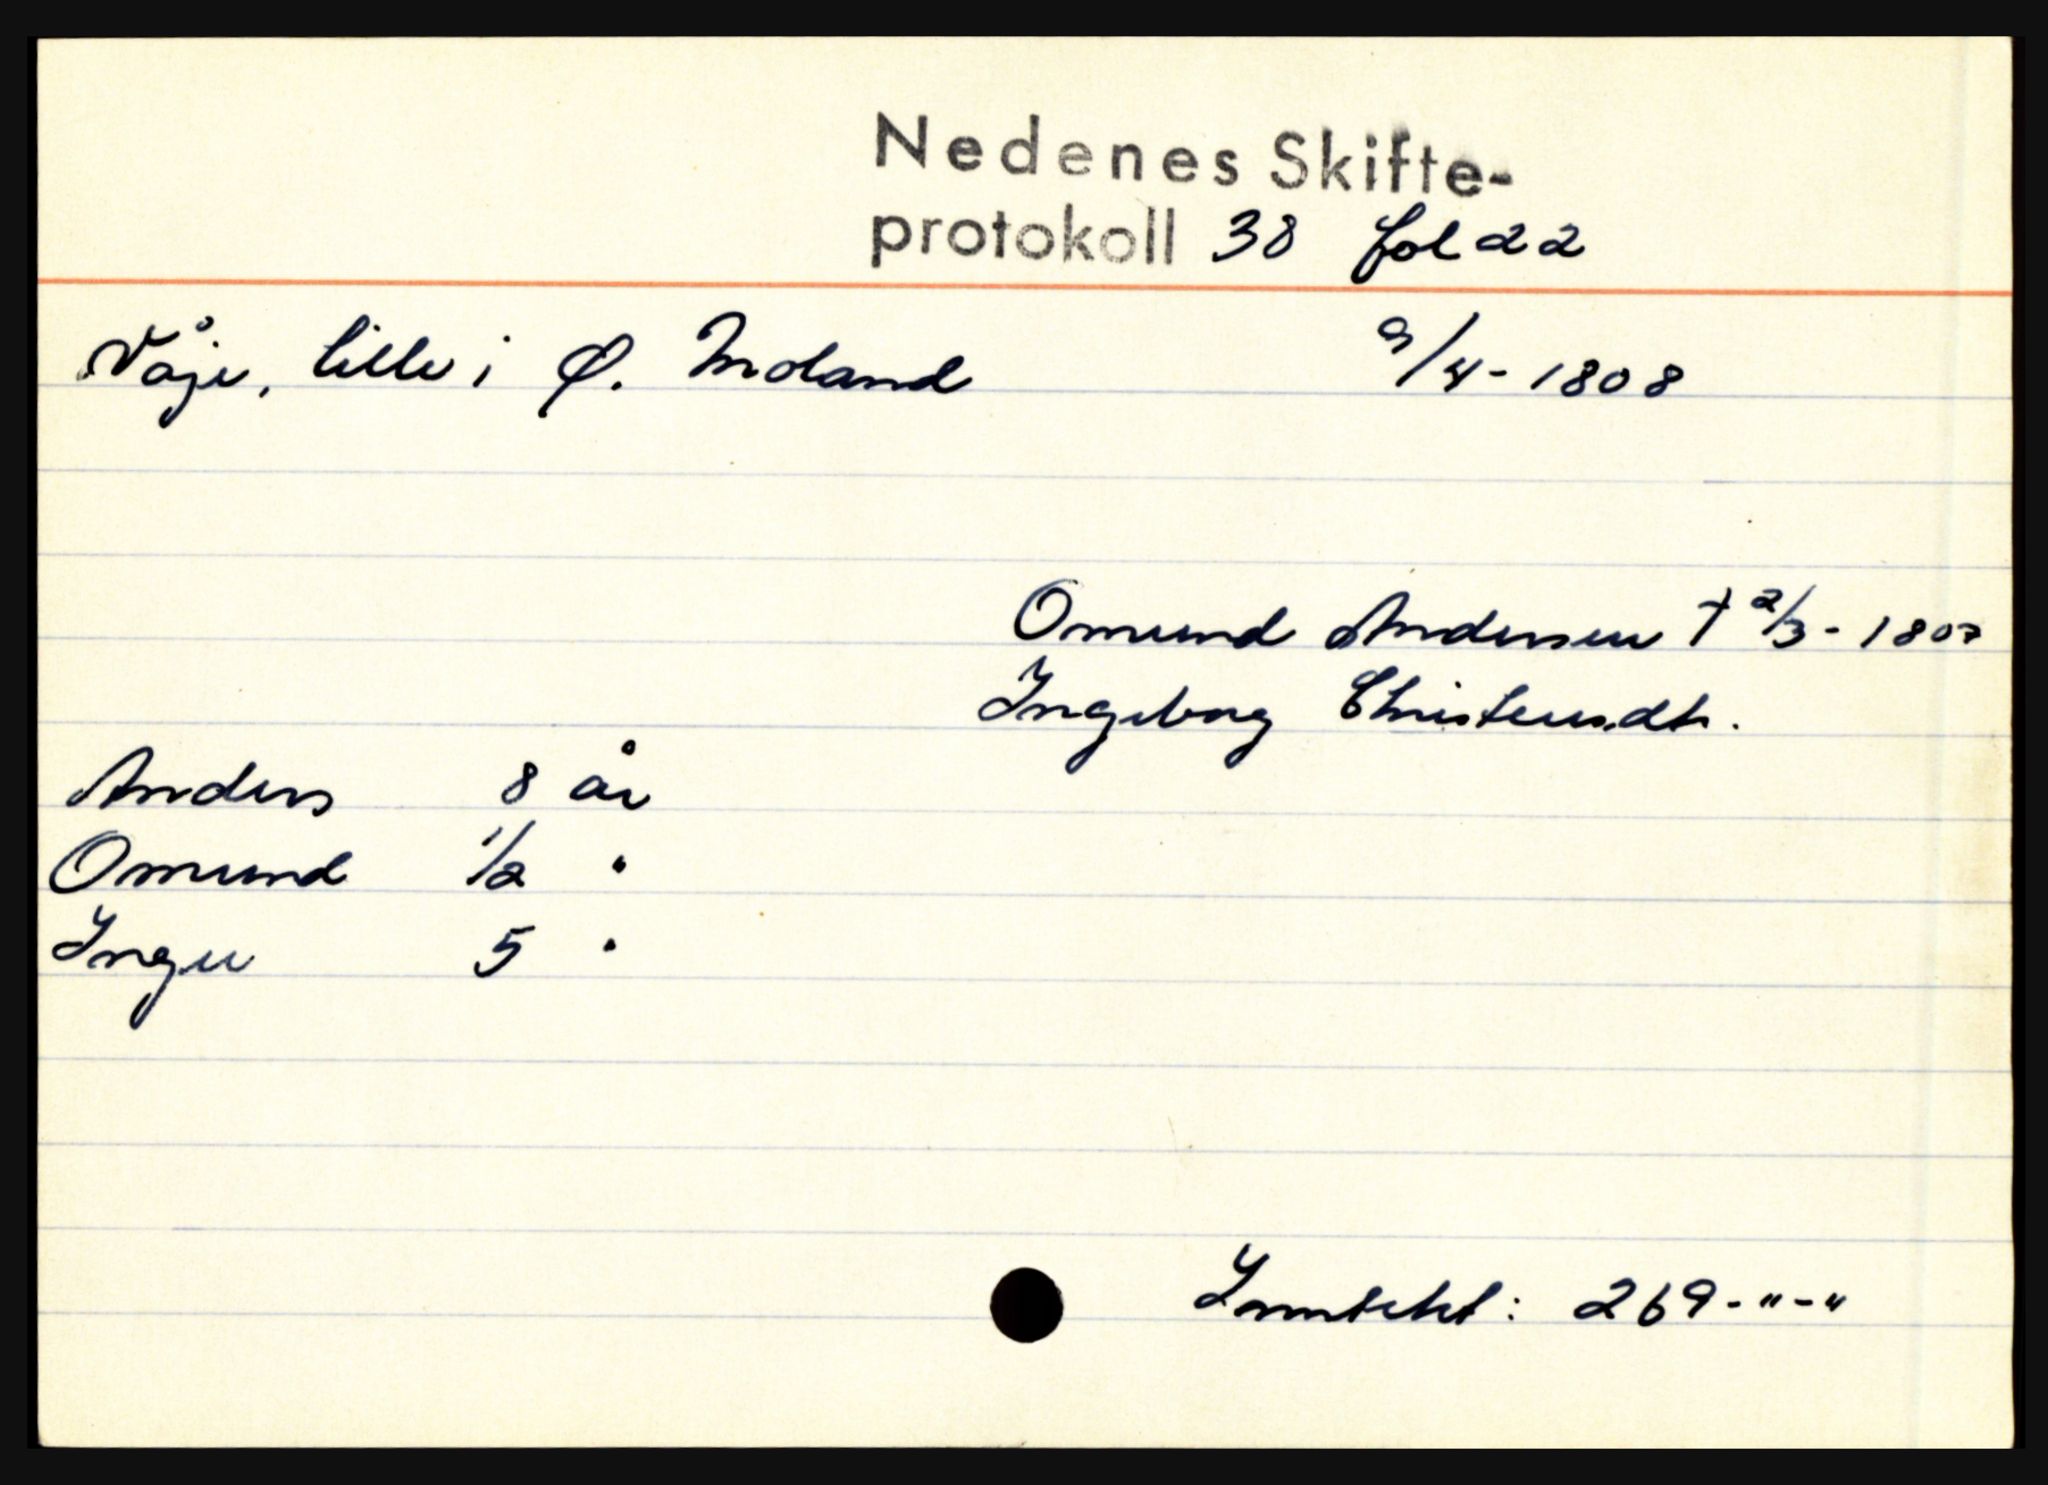 Nedenes Skifte-
protokoll 38 fol 22
Våje, lille i Ø. Moland 9/4-1808
Omund Andersen † 2/3-1807
Ingeborg Christensdtr.
Anders 8 år
Omund 1/2 "
Inger 5 "
Inntekt: 269-"-"